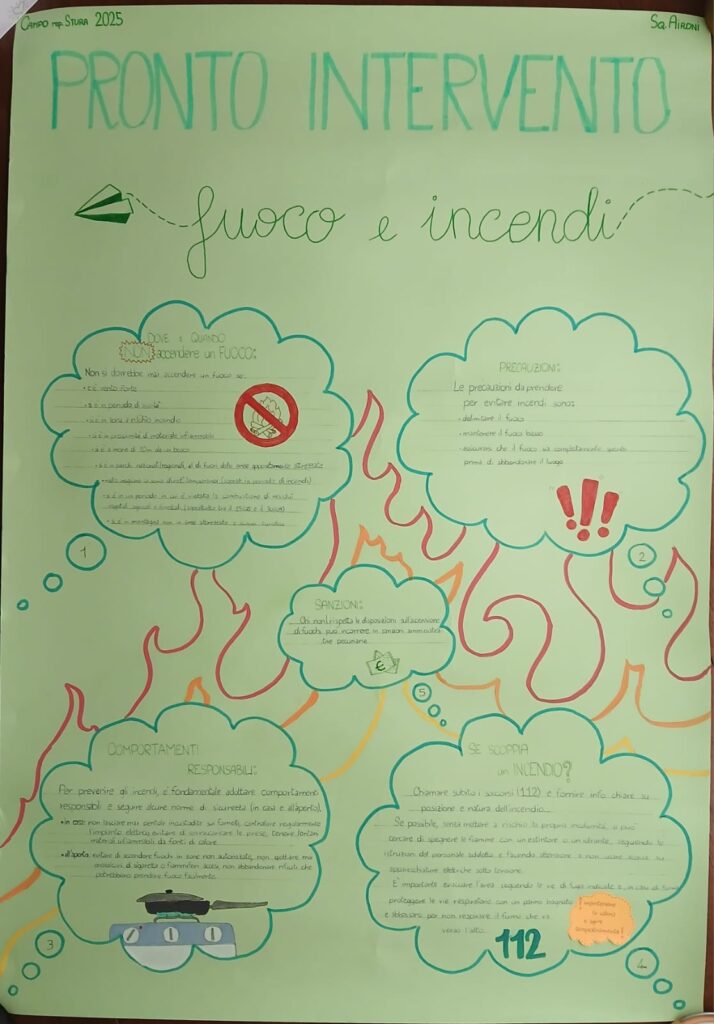 CAMPO rep. STURA 2025
SQ. AIRONI
PRONTO INTERVENTO
fuoco e incendi
DOVE E QUANDO
NON accendere un FUOCO:
Non si dovrebbe mai accendere un fuoco se
• c'è vento forte
• si è in periodo di siccità
• si è in zona a rischio incendio
• si è in prossimità di materiale infiammabile
• si è a meno di 50m da un bosco
• si è in parchi nazionali/regionali, al di fuori delle aree appositamente attrezzate
• si è in un periodo in cui è vietata la combustione di residui
vegetali agricoli e forestali
• si è in montagna non in aree attrezzate
1
PRECAUZIONI:
Le precauzioni da prendere
per evitare incendi sono:
• delimitare il fuoco
• mantenere il fuoco basso
• assicurarsi che il fuoco sia completamente spento
prima di abbandonare il luogo
!!!
2
SANZIONI:
Chi non rispetta le disposizioni sull'accensione
di fuochi può incorrere in sanzioni amministra
tive pecuniarie.
€
5
COMPORTAMENTI
RESPONSABILI:
Per prevenire gli incendi, è fondamentale adottare comportamenti
responsabili e seguire alcune norme di sicurezza (in casa e all'aperto).
• in casa: non lasciare mai pentole incustodite sui fornelli, controllare regolarmente
l'impianto elettrico, evitare di sovraccaricare le prese, tenere lontani
materiali infiammabili da fonti di calore.
• all'aperto: evitare di accendere fuochi in zone non autorizzate, non gettare mai
mozziconi di sigaretta o fiammiferi accesi, non abbandonare rifiuti che
potrebbero prendere fuoco facilmente.
3
SE SCOPPIA
un INCENDIO?
Chiamare subito i soccorsi (112) e fornire info chiare su
posizione e natura dell'incendio.
Se possibile, senza mettere a rischio la propria incolumità, si può
cercare di spegnere le fiamme con un estintore o un idrante, seguendo le
istruzioni del personale addetto e facendo attenzione a non usare acqua su
apparecchiature elettriche sotto tensione.
È importante evacuare l'area seguendo le vie di fuga indicate e, in caso di fumo,
proteggere le vie respiratorie con un panno bagnato
e abbassarsi per non respirare il fumo che va
verso l'alto.
112
! mantenere
la calma
e agire
tempestivamente!
4